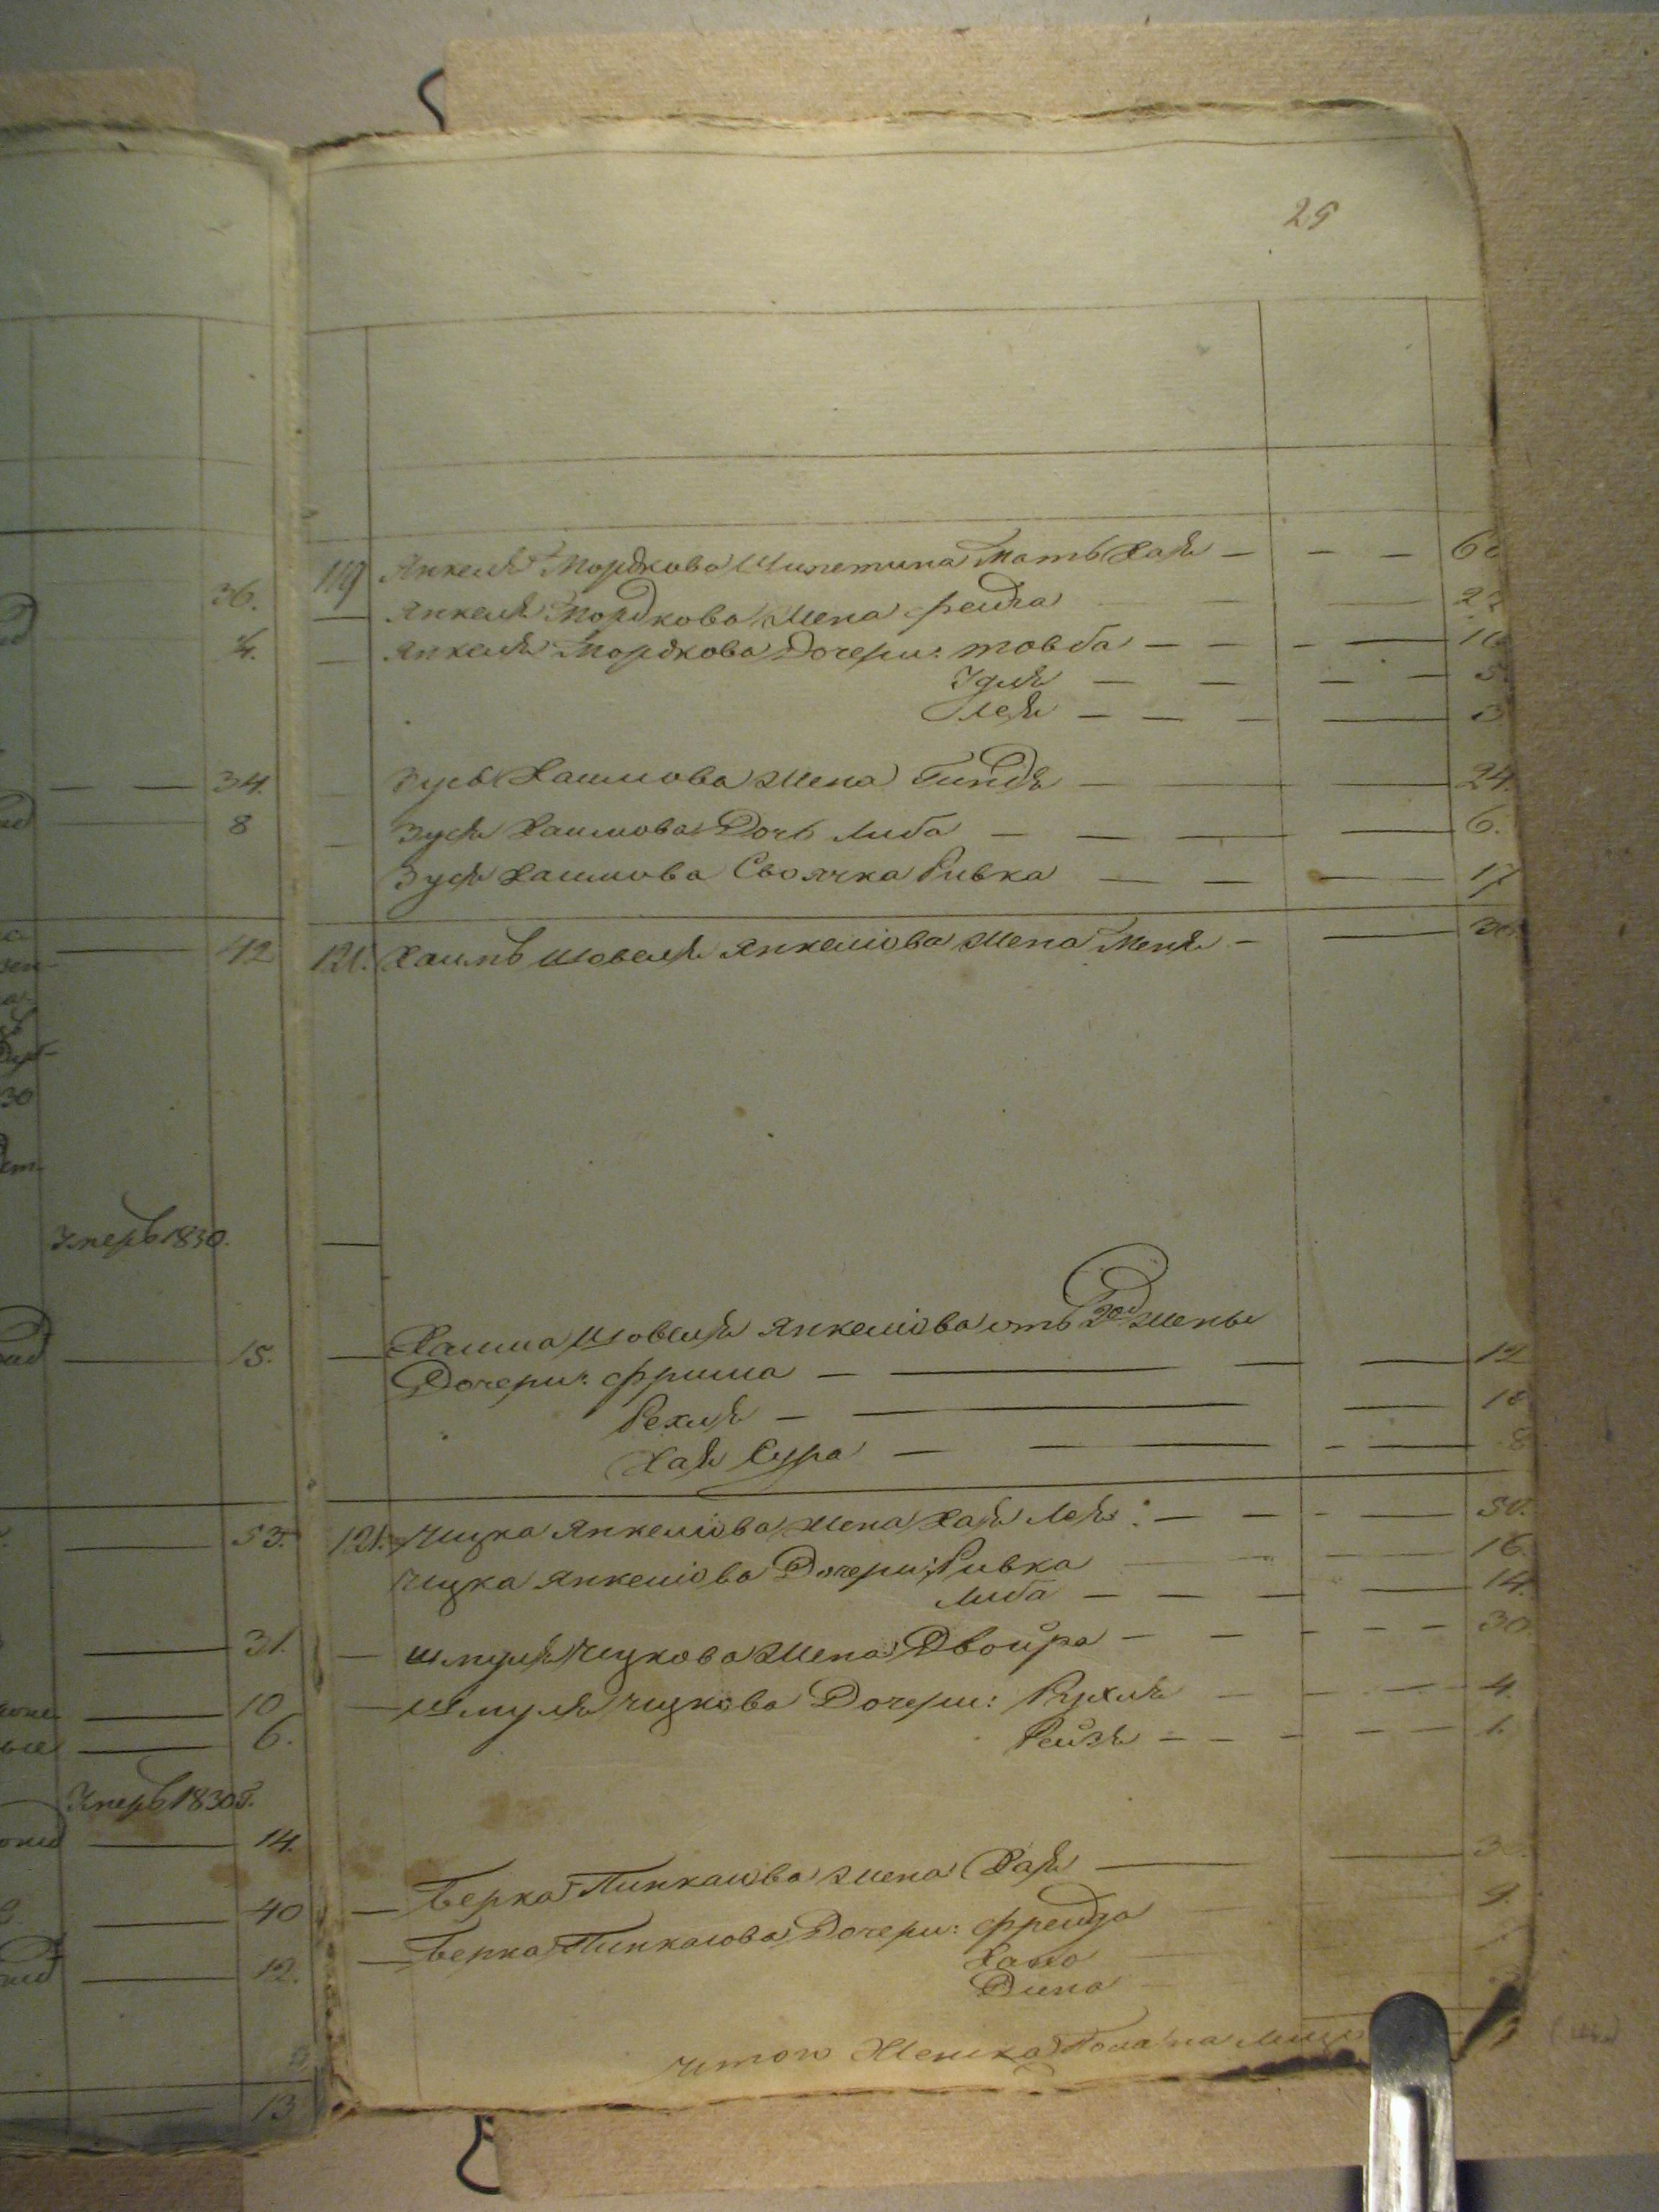 25
36. 119 Янкеля Мордкова Мать Хая — — — 60
— Янкеля Мордкова Жена Фейга — — 2
4. — Янкеля Мордкова Дочери: товба — — — 16
Идля — — — — 5
Лея — — — — 3
— — 34. Зуся Хаимова Жена Гиндя — — — 24.
— 8 — Зуся Хаимова Дочь Либа — — — — 6.
Зуся Хаимова Своячка Ривка — — — 17
— 42 121. Хаимъ Шовеля Янкелiова Жена Меня — — 30
30
Умеръ 1830. —
Хаима Шовеля Янкелiова отъ 2ой жены
— 15. — Дочери: Фрима — — — — 12
Рехля — — — 10
Хая Сура — — — — — 8
— 53. 121. Ицка Янкелiова Жена Хая Лея: — — — — 50.
Ицка Янкелiова Дочери: Ривка — — — 16.
Либа — — — — 14.
— 31. — Шмуля Ицкова Жена Двойра — — — — — 30
— 10 — Шмуля Ицкова Дочери: Рухля — — — — 4.
— 6. Рейзя — — — — — 1.
Умеръ 1830 г.
— 14.
— Берка Пинкасова Жена Хая — — 3
— 40
— Берка Пинкасова Дочери: Фрейда — 9.
Хана —
— 12. Дина —
итого Женска Пола на лицо
— 13